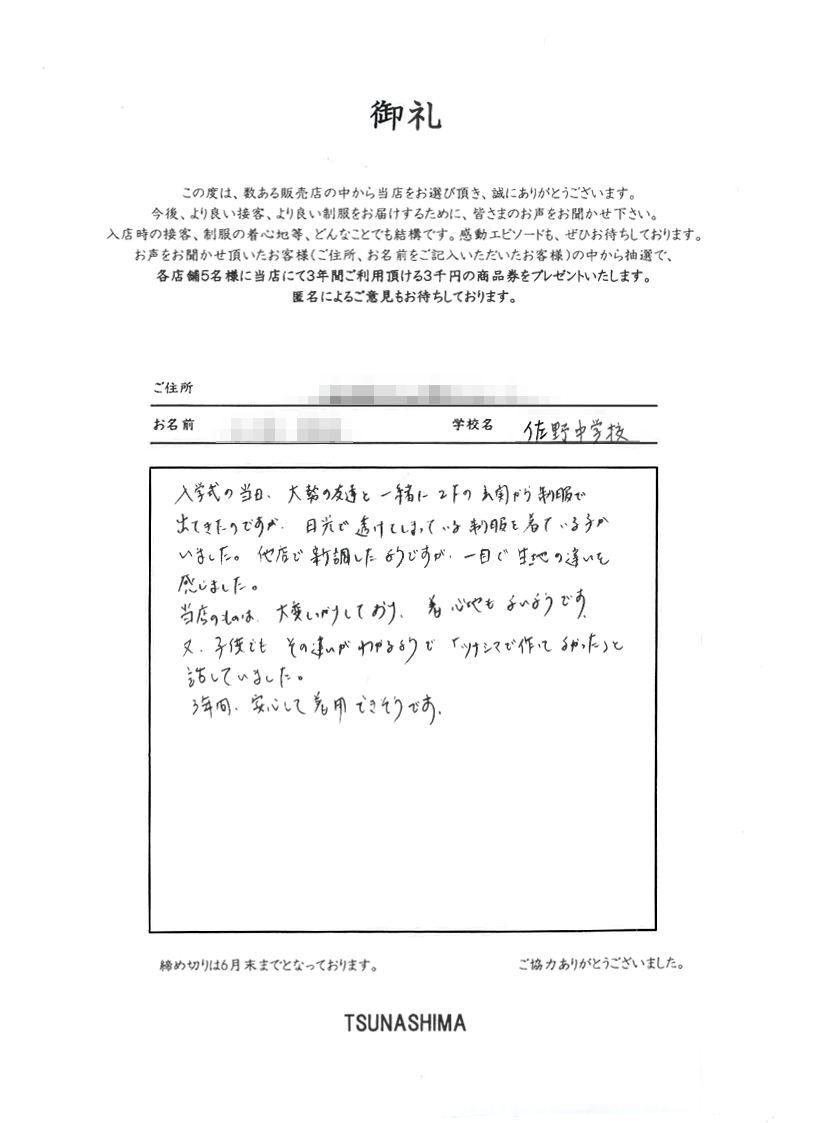 御礼
この度は、数ある販売店の中から当店をお選び頂き、誠にありがとうございます。
今後、より良い接客、より良い制服をお届けするために、皆さまのお声をお聞かせ下さい。
入店時の接客、制服の着心地等、どんなことでも結構です。感動エピソードも、ぜひお待ちしております。
お声をお聞かせ頂いたお客様(ご住所、お名前をご記入いただいたお客様)の中から抽選で、
各店舗5名様に当店にて3年間ご利用頂ける3千円の商品券をプレゼントいたします。
匿名によるご意見もお待ちしております。
ご住所
お名前 学校名 佐野中学校
入学式の当日、大勢の友達と一緒に2Fの玄関から制服で
出てきたのですが、日光で透けてしまっている制服を着ている子が
いました。他店で新調したようですが、一目で生地の違いを
感じました。
当店のものは、大変しっかりしており、着心地もよいようです。
又、子供でもその違いがわかるようで「ツナシマで作ってよかった」と
話していました。
3年間、安心して着用できそうです。
締め切りは6月末までとなっております。 ご協力ありがとうございました。
TSUNASHIMA